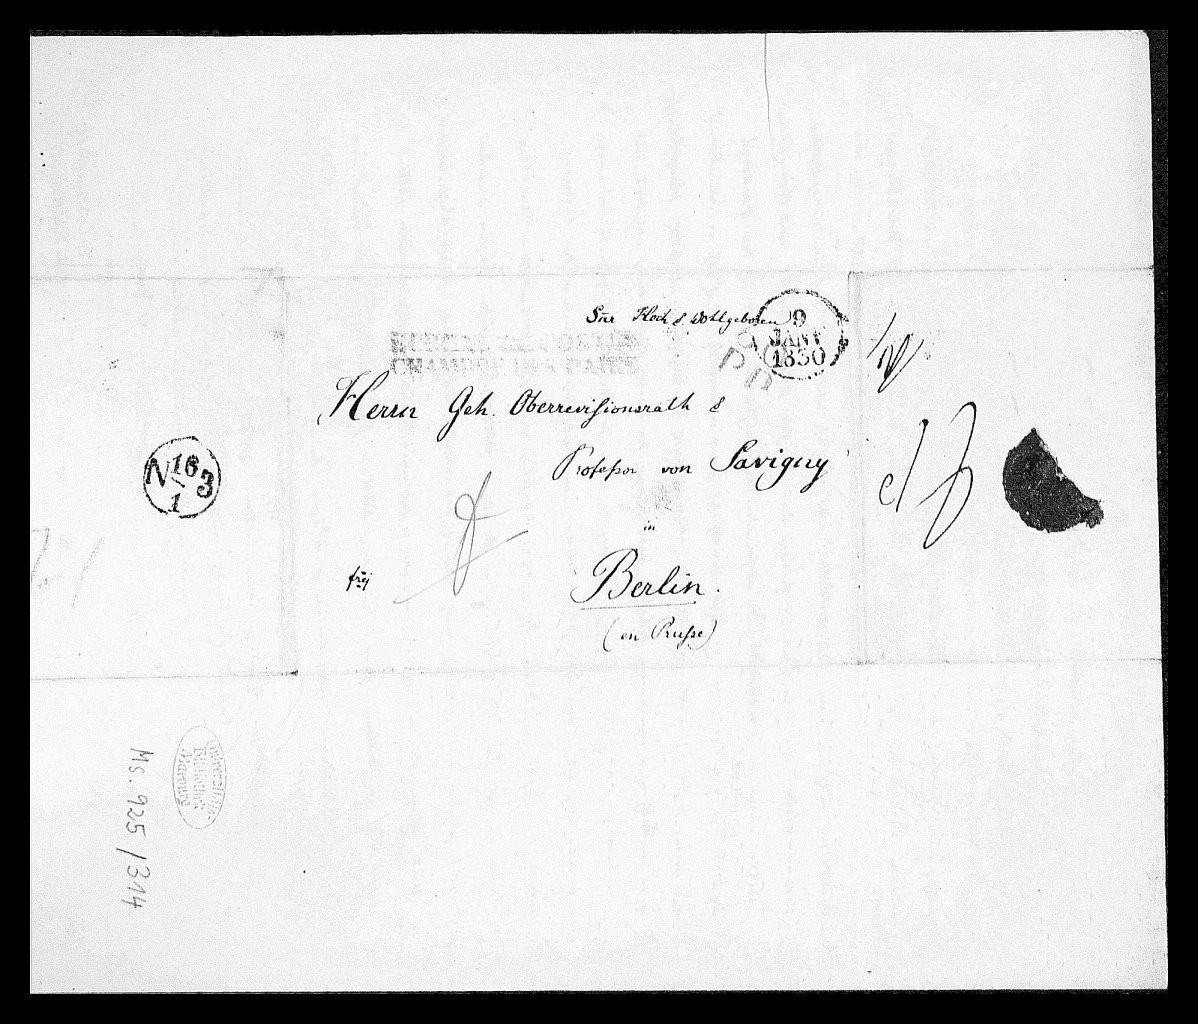 Sr Hoch & Wohlgeboren
9
JANV
1830
CHAMBRE DES PAIRS
PP
Herrn Geh. Oberrevisionsrath &
Professor von Savigny
in
Berlin.
(en Prusse)
frej
N 16 3
1
Ms. 925/314